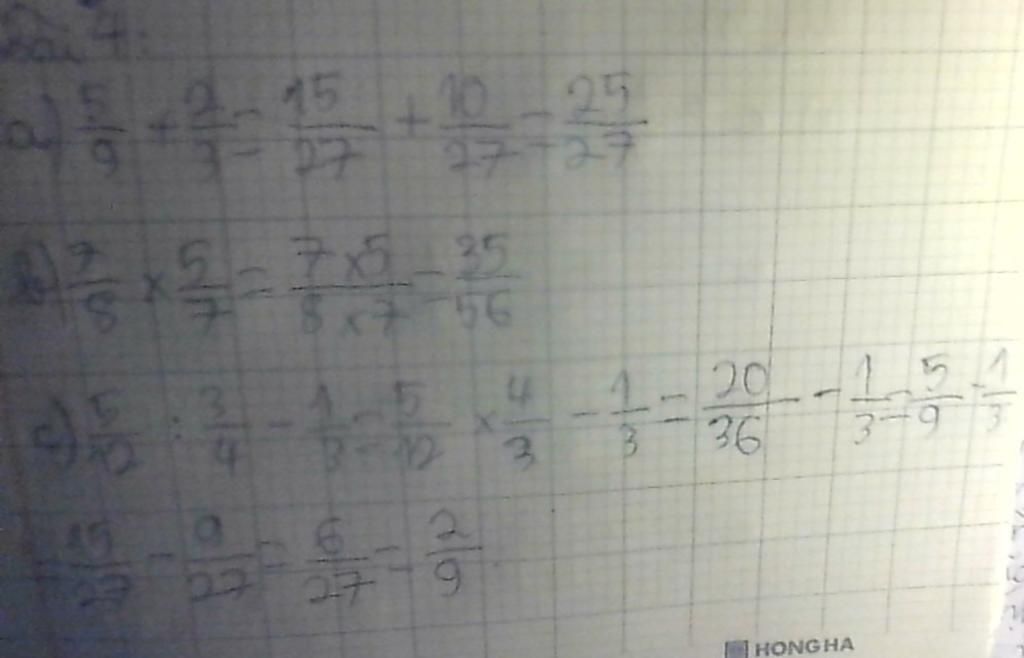 Bài 4:
a) 5/9 + 2/3 = 15/27 + 10/27 = 25/27
b) 7/8 × 5/7 = 7×5/8×7 = 35/56
c) 5/12 : 3/4 - 1/3 = 5/12 × 4/3 - 1/3 = 20/36 - 1/3 = 5/9 - 1/3
= 15/27 - 9/27 = 6/27 = 2/9
HONG HA